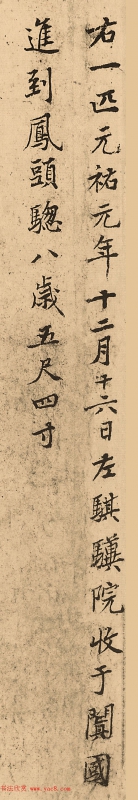 右一匹元祐元年十二月十六日左騏驥院收于闐國
進到鳳頭驄八歲五尺四寸
书法欣赏 www.yac8.com